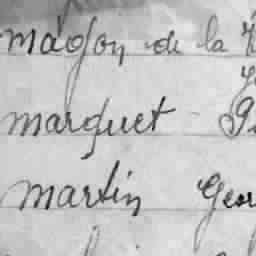 magon de la
marquet
martin Geor